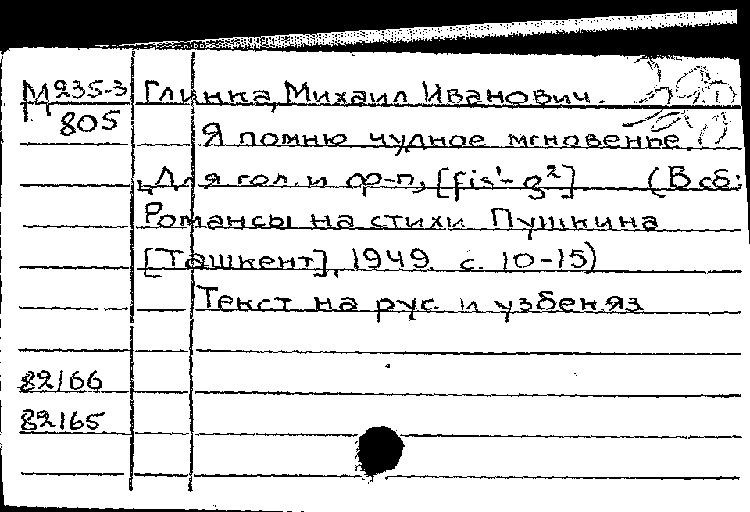 М235-3 Глинка, Михаил Иванович.
805
Я помню чудное мгновенье.
Для гол. и ф-п, [fis¹-g²]. (В сб:
Романсы на стихи Пушкина
[Ташкент], 1949. с. 10-15)
Текст на рус. и узбек яз
82166
82165